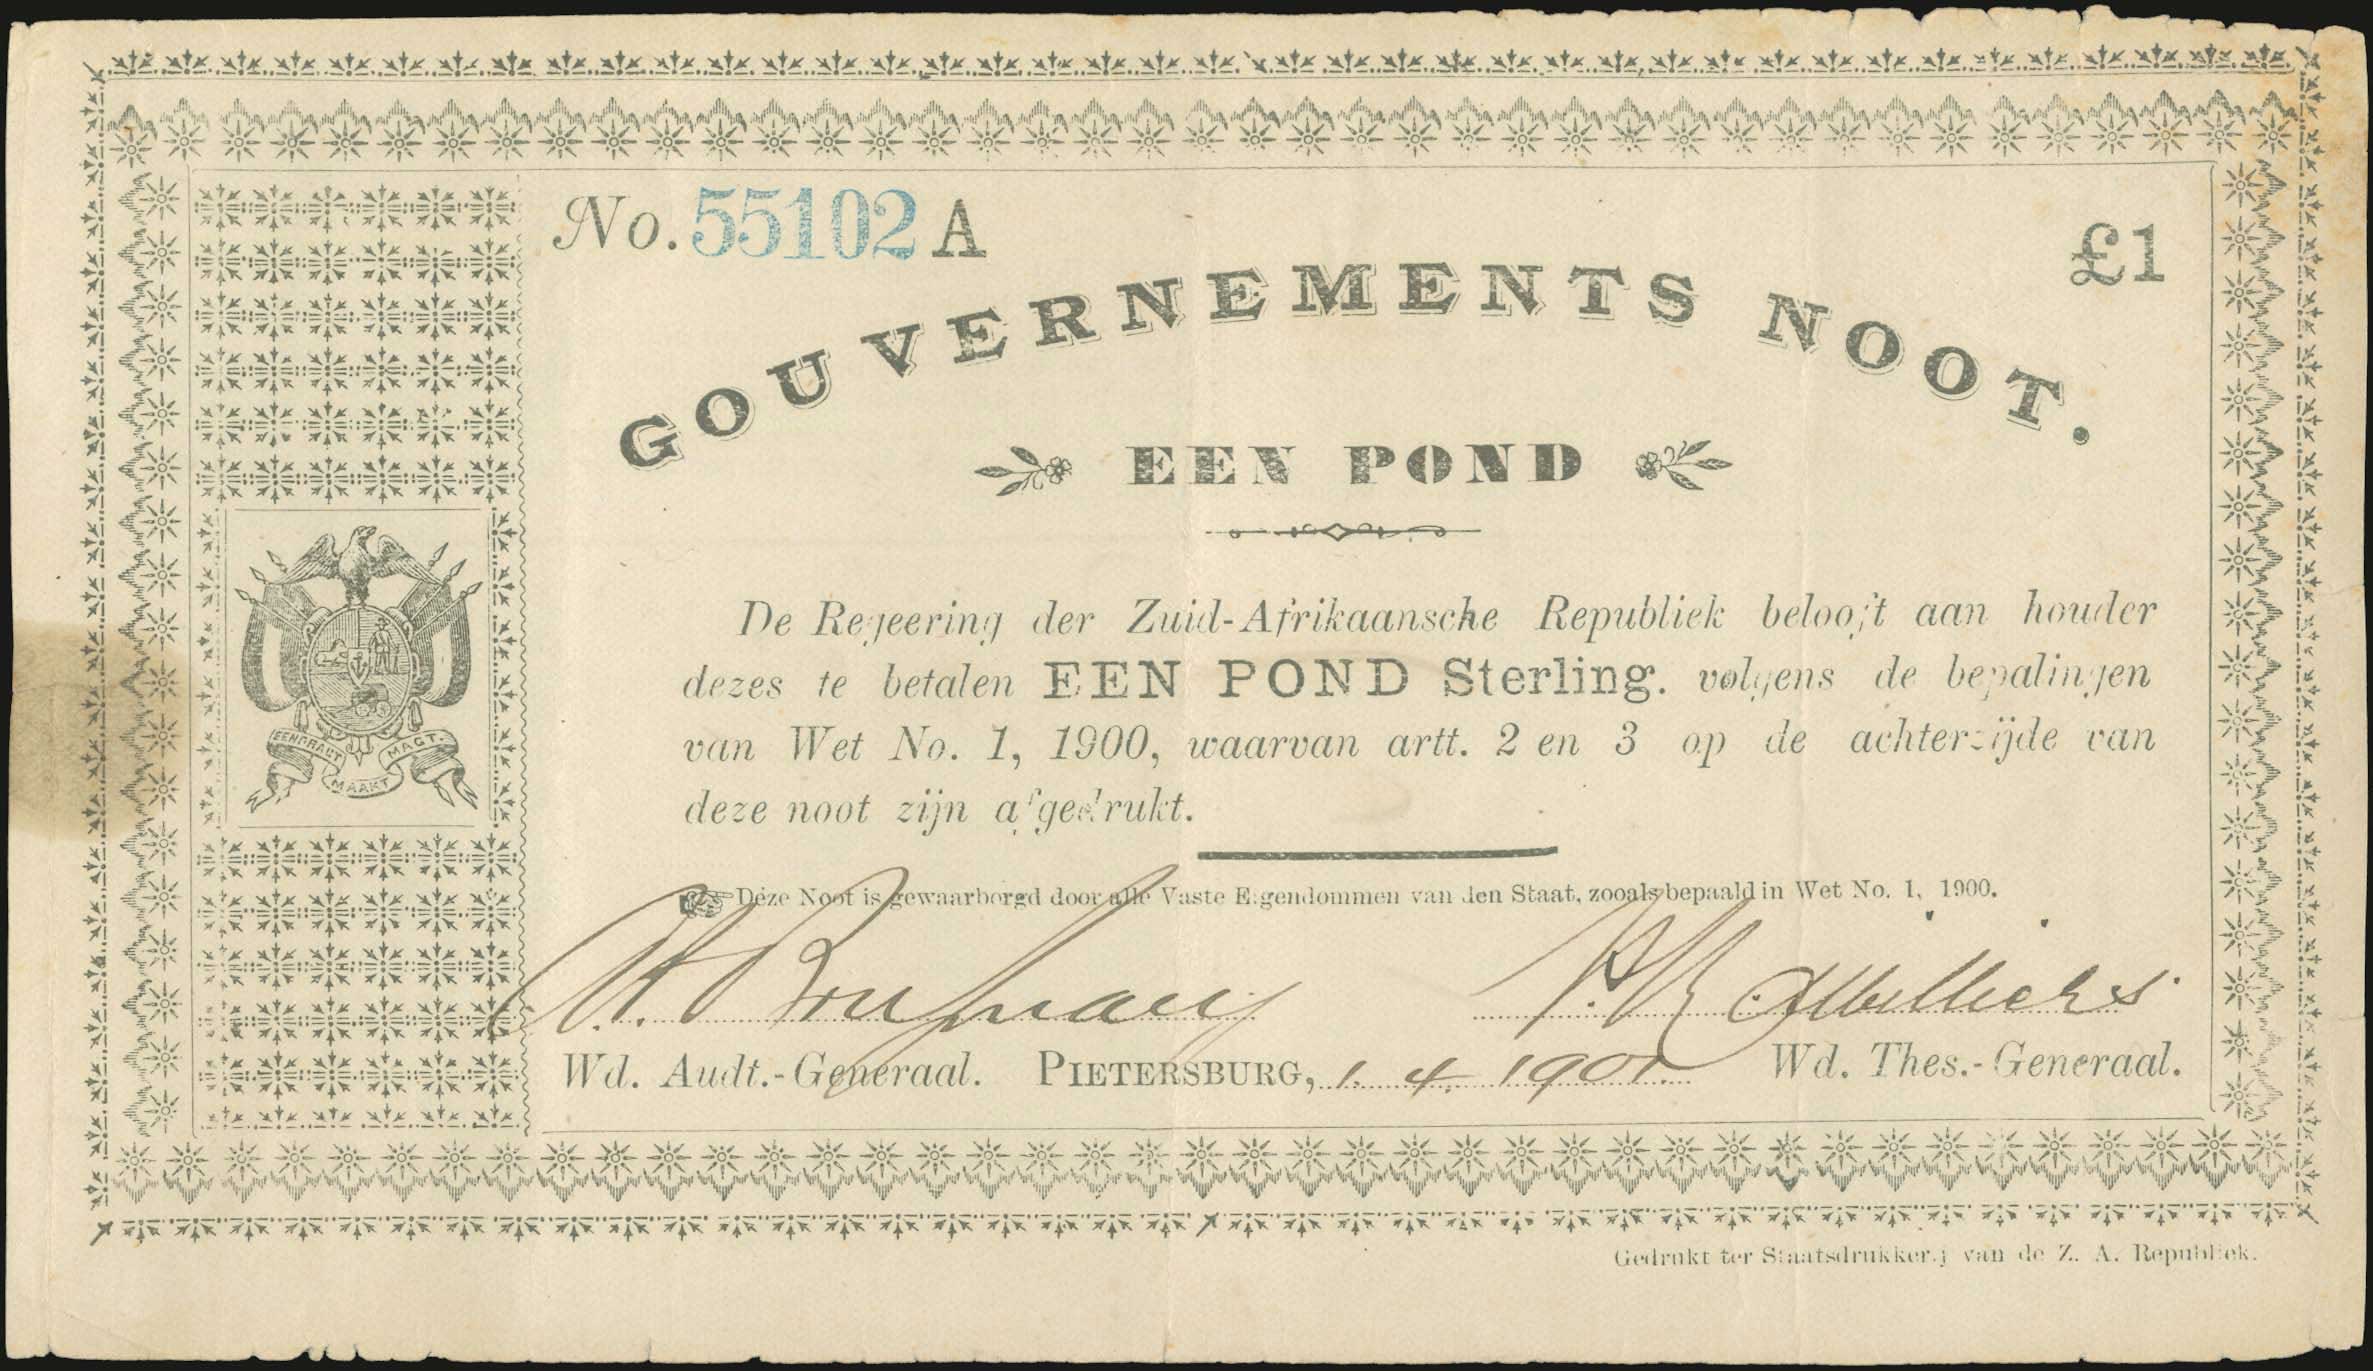 No. 55102 A
£1
GOUVERNEMENTS NOOT.
EEN POND
De Regeering der Zuid-Afrikaansche Republiek belooft aan houder
dezes te betalen EEN POND Sterling. volgens de bepalingen
van Wet No. 1, 1900, waarvan artt. 2 en 3 op de achterzijde van
deze noot zijn afgedrukt.
EENDRAGT MAAKT MAGT.
Deze Noot is gewaarborgd door alle Vaste Eigendommen van den Staat, zooals bepaald in Wet No. 1, 1900.
Wd. Audt.-Generaal. PIETERSBURG, 1. 4. 1901. Wd. Thes.-Generaal.
Gedrukt ter Staatsdrukkerij van de Z. A. Republiek.